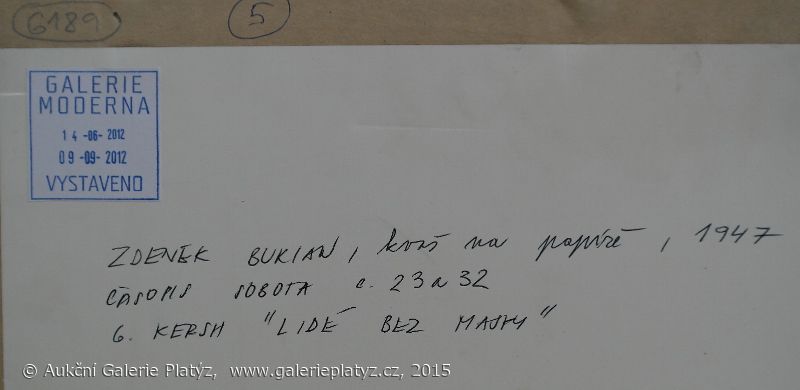 6189 5
GALERIE
MODERNA
14-06-2012
09-09-2012
VYSTAVENO
ZDENEK BURIAN, kvaš na papíře, 1947
ČASOPIS SOBOTA č. 23 a 32
G. KERSH "LIDÉ BEZ MASKY"
© Aukční Galerie Platýz, www.galerieplatyz.cz, 2015